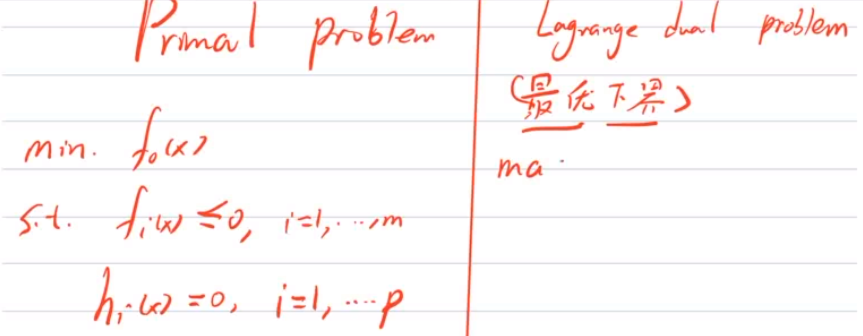 Primal problem
min. f₀(x)
s.t. fᵢ(x) ≤ 0, i=1, ..., m
hᵢ(x) = 0, i=1, .... p
Lagrange dual problem
(最优下界)
ma